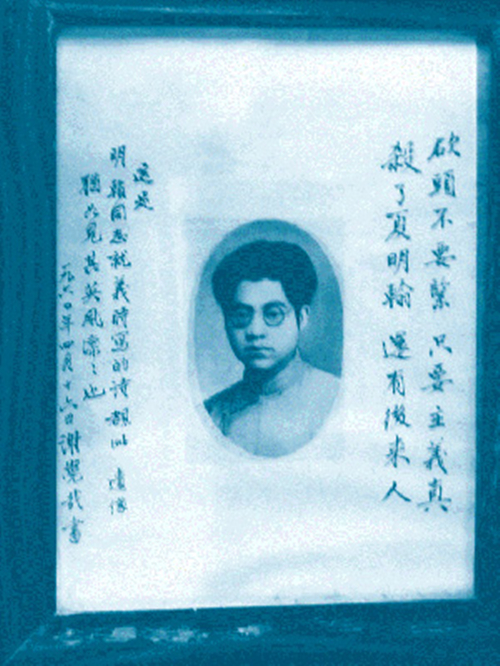 砍頭不要緊 只要主義真
殺了夏明翰 還有後來人
這是
明翰同志就義時寫的詩 遺像
猶見其英風凜〻也
一九六〇年四月十六日謝覺哉書